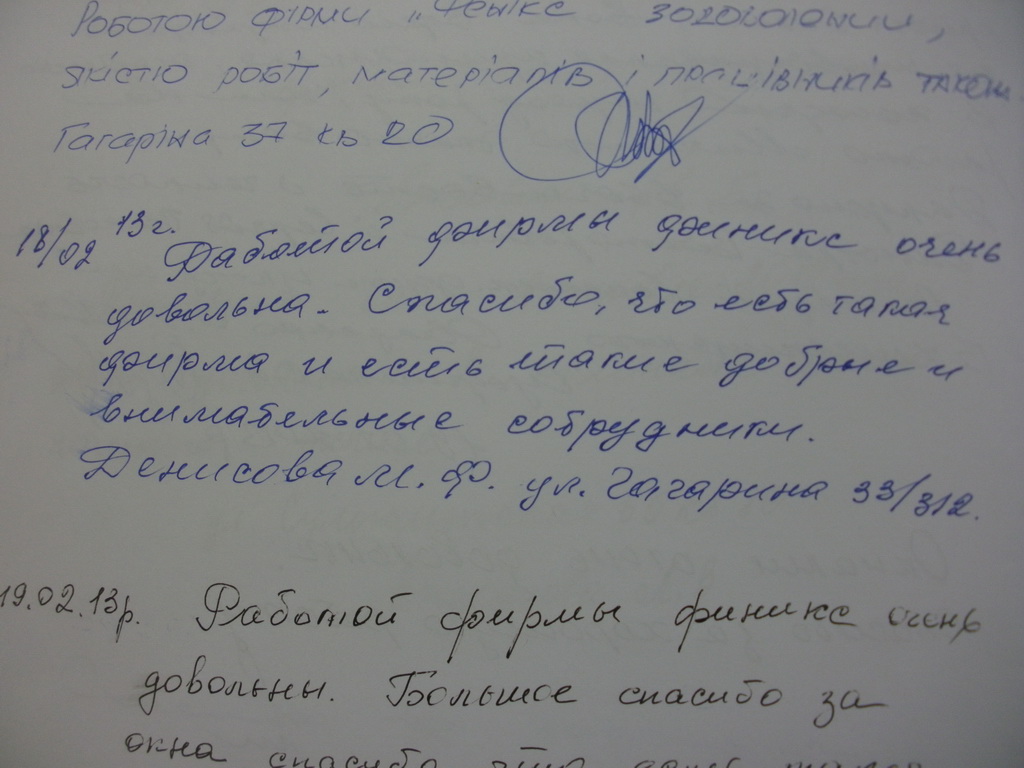 Роботою фірми „Фенікс задоволений,
якістю робіт, матеріалів і працівників також
Гагаріна 37 кв 20
18/02 13г. Работой фирмы финикс очень
довольна. Спасибо, что есть такая
фирма и есть такие добрые и
внимабельные собрудники.
Денисова М. Ф. ул. Гагарина 33/312.
19.02.13р. Работой фирмы финикс очень
довольны. Большое спасибо за
окна спасибо что